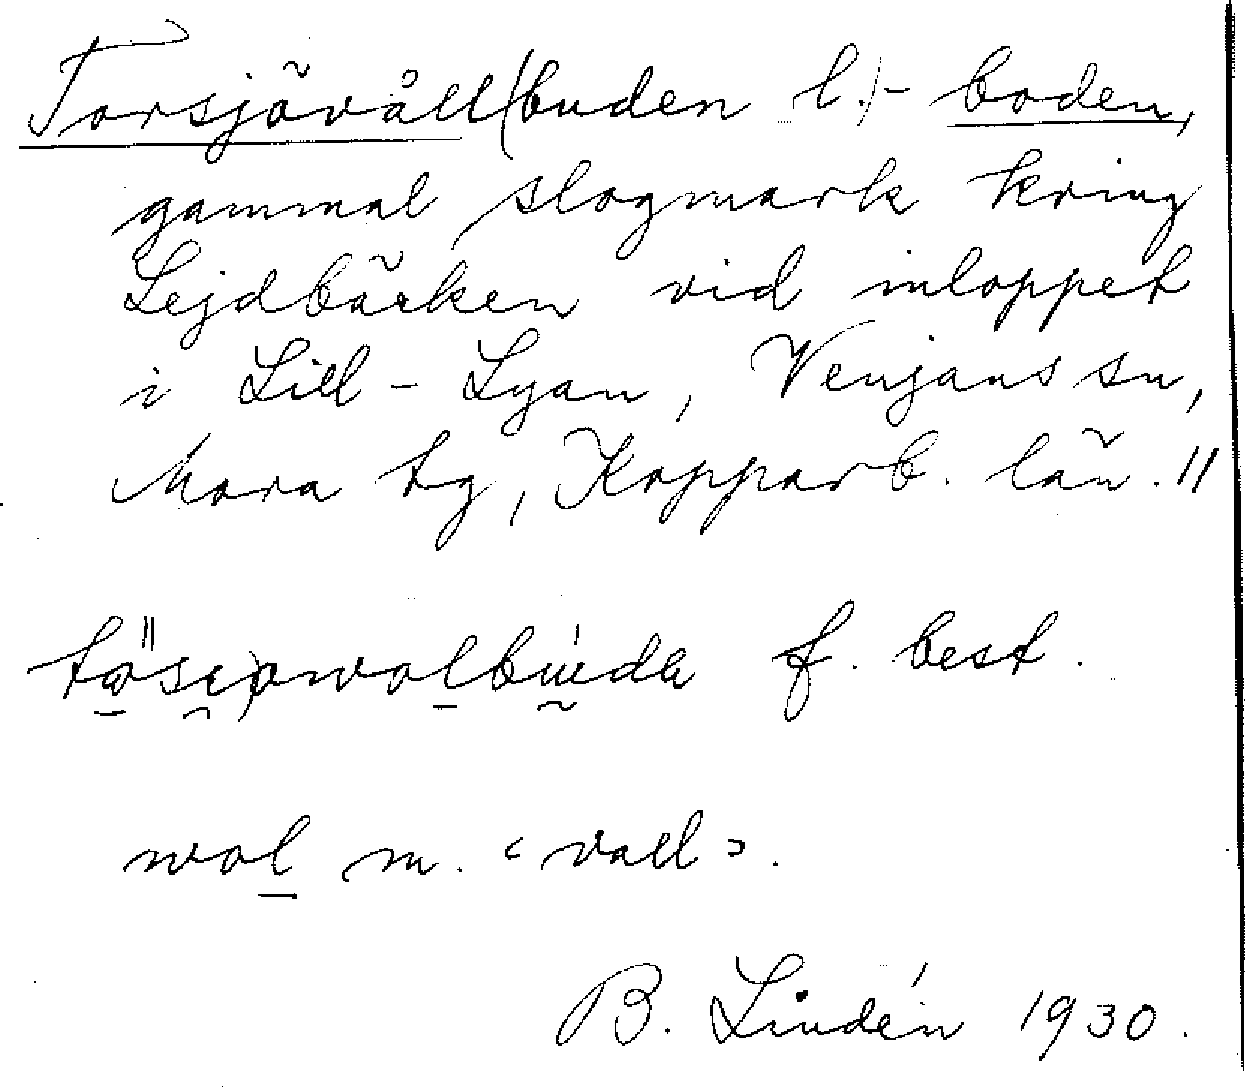 Torsjövåll(buden l.)- boden,
gammal slogmark kring
Lejdbäcken vid inloppet
i Lill-Lyan, Venjans sn,
Mora tg, Kopparb. län. ||
f. best.
wol m. <vall>.
B. Lindén 1930.